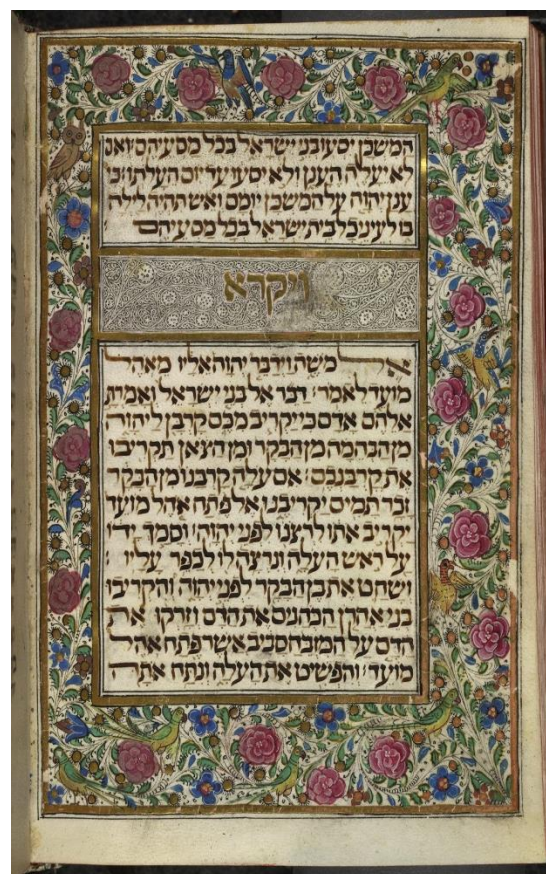 המשכן יסעו בני ישראל בכל מסעיהם ואם
לא יעלה הענן ולא יסעו עד יום העלתו כי
ענן יהוה על המשכן יומם ואש תהיה לילה
בו לעיני כל בית ישראל בכל מסעיהם
ויקרא
אל משה וידבר יהוה אליו מאהל
מועד לאמר דבר אל בני ישראל ואמרת
אלהם אדם כי יקריב מכם קרבן ליהוה
מן הבהמה מן הבקר ומן הצאן תקריבו
את קרבנכם אם עלה קרבנו מן הבקר
זכר תמים יקריבנו אל פתח אהל מועד
יקריב אתו לרצנו לפני יהוה וסמך ידו
על ראש העלה ונרצה לו לכפר עליו
ושחט את בן הבקר לפני יהוה והקריבו
בני אהרן הכהנים את הדם וזרקו את
הדם על המזבח סביב אשר פתח אהל
מועד והפשיט את העלה ונתח אתה